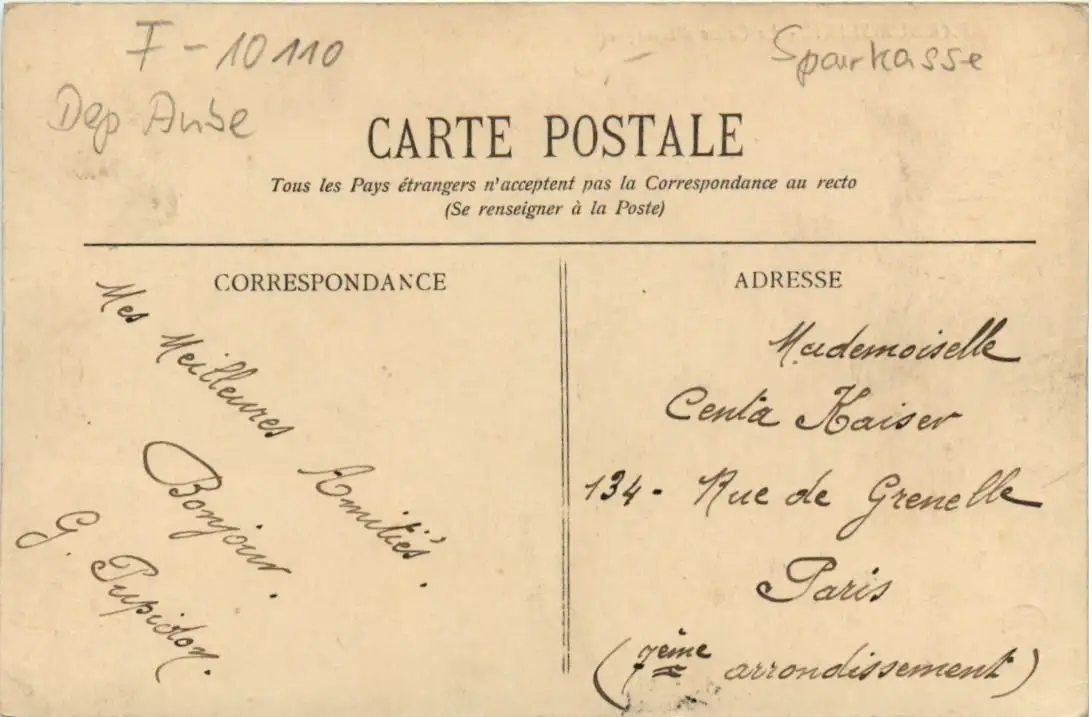 F-10110
Sparkasse
Dep Aube
CARTE POSTALE
Tous les Pays étrangers n'acceptent pas la Correspondance au recto
(Se renseigner à la Poste)
CORRESPONDANCE
Mes Meilleures Amitiés.
Bonjour.
G. Pupidon.
ADRESSE
Mademoiselle
Centa Kaiser
134- Rue de Grenelle
Paris
(7ème arrondissement)